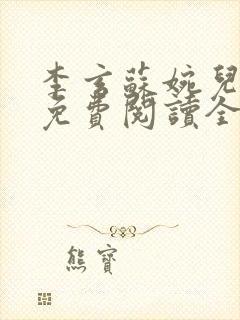 李言蘇婉兒
免費閱讀全
熊寶